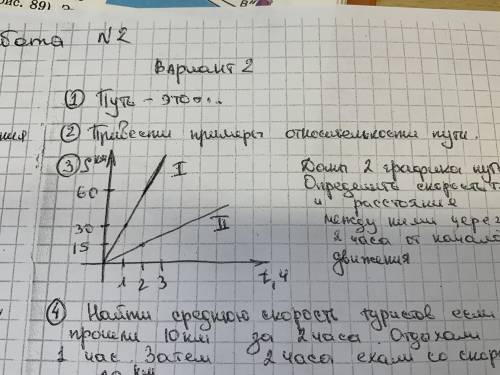 ис. 89)
бота N2
Вариант 2
① Путь – это...
ния
② Привести примеры относительности пути.
③ S км
I
60
30
15
II
1 2 3
t, ч
Даны 2 графика пут
Определить скорость т
и расстояние
между ними через
2 часа от начала
движения
④ Найти среднюю скорость туристов если
прошли 10 км за 2 часа. Отдыхали
1 час. Затем 2 часа ехали со скор
км